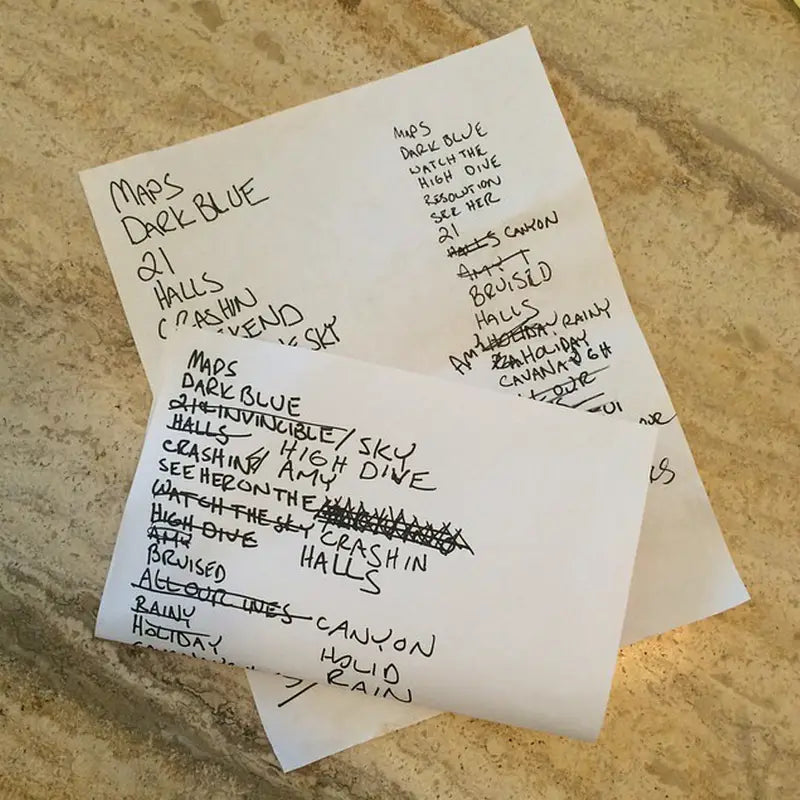 MAPS
DARK BLUE
21
HALLS
CRASHIN
SKY
MAPS
DARK BLUE
WATCH THE
HIGH DIVE
RESOLUTION
SEE HER
21
HALLS CANYON
AMY I
BRUISED
HALLS
AMY HOLIDAY RAINY
HOLIDAY
CAVANAUGH
OUR
MAPS
DARK BLUE
21 INVINCIBLE / SKY
HALLS HIGH DIVE
CRASHIN / AMY
SEE HER ON THE
WATCH THE SKY CRASHIN
HIGH DIVE HALLS
AMY
BRUISED
ALL OUR LIVES CANYON
RAINY
HOLIDAY HOLID
RAIN